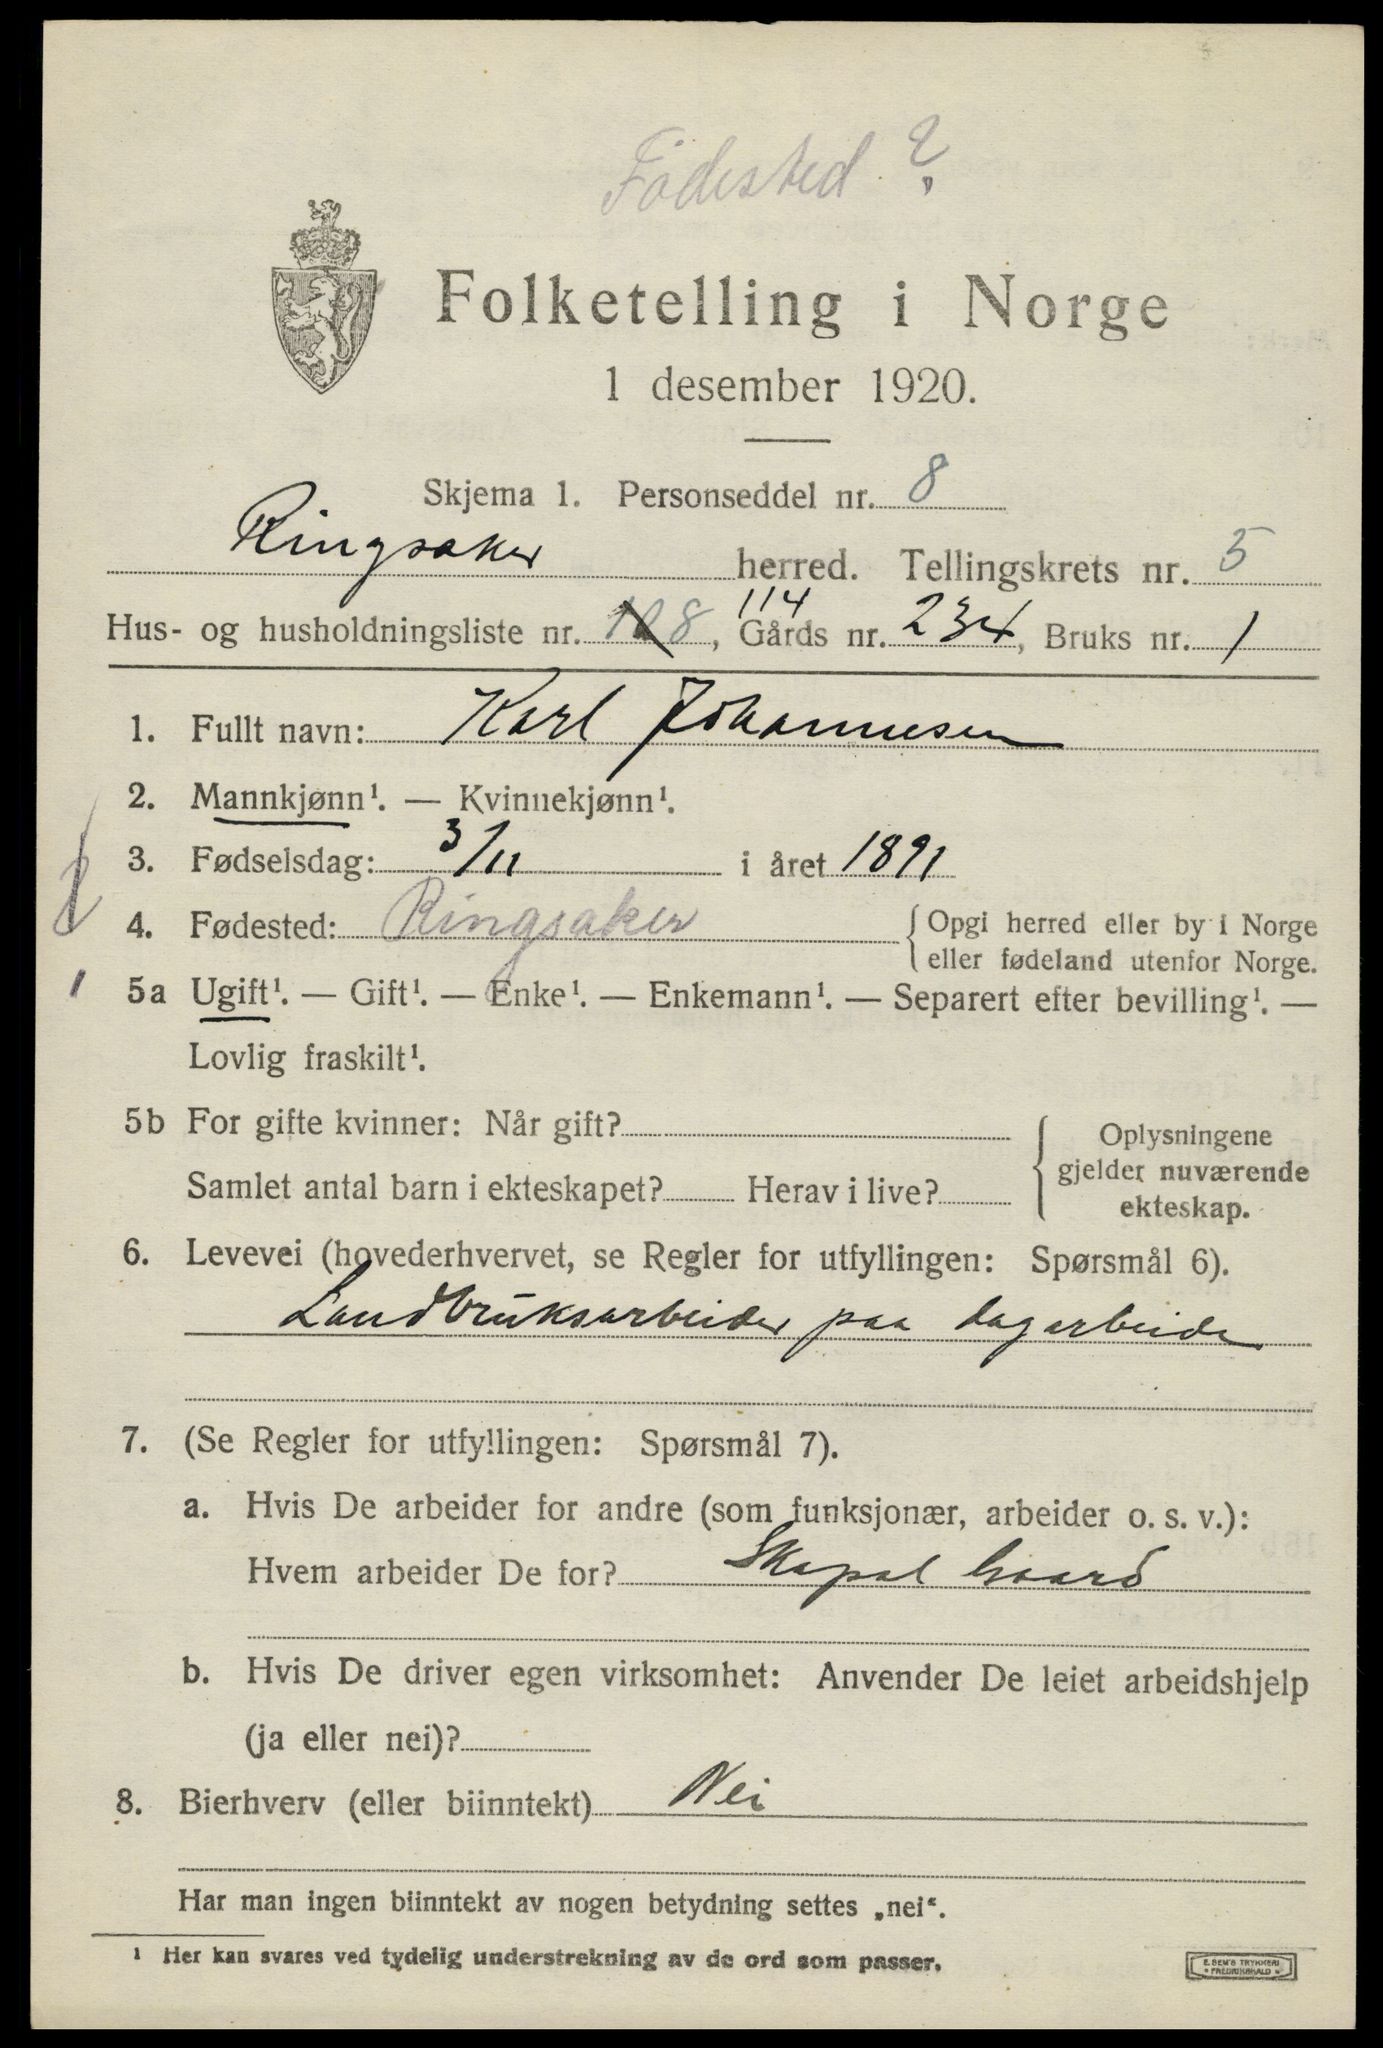 Födested ?
Folketelling i Norge
1 desember 1920.
Skjema 1. Personseddel nr. 8
Ringsaker herred. Tellingskrets nr. 5
114
Hus- og husholdningsliste nr. 128, Gårds nr. 234, Bruks nr. 1
1. Fullt navn: Karl Johannesen
2. Mannkjønn¹. — Kvinnekjønn¹.
3. Fødselsdag: 3/11 i året 1891
4. Fødested: Ringsaker {Opgi herred eller by i Norge
eller fødeland utenfor Norge.
1 5a Ugift¹. — Gift¹. — Enke¹. — Enkemann¹. — Separert efter bevilling¹. —
Lovlig fraskilt¹.
5b For gifte kvinner: Når gift?
Samlet antal barn i ekteskapet? Herav i live?
Oplysningene
gjelder nuværende
ekteskap.
6. Levevei (hovederhvervet, se Regler for utfyllingen: Spørsmål 6).
Landbruksarbeider paa dagarbeide
7. (Se Regler for utfyllingen: Spørsmål 7).
a. Hvis De arbeider for andre (som funksjonær, arbeider o. s. v.):
Hvem arbeider De for? Skapal Gaard
b. Hvis De driver egen virksomhet: Anvender De leiet arbeidshjelp
(ja eller nei)?
8. Bierhverv (eller biinntekt) Nei
Har man ingen biinntekt av nogen betydning settes „nei“.
¹ Her kan svares ved tydelig understrekning av de ord som passer.
E. SEM'S TRYKKERI
FREDRIKSHALD